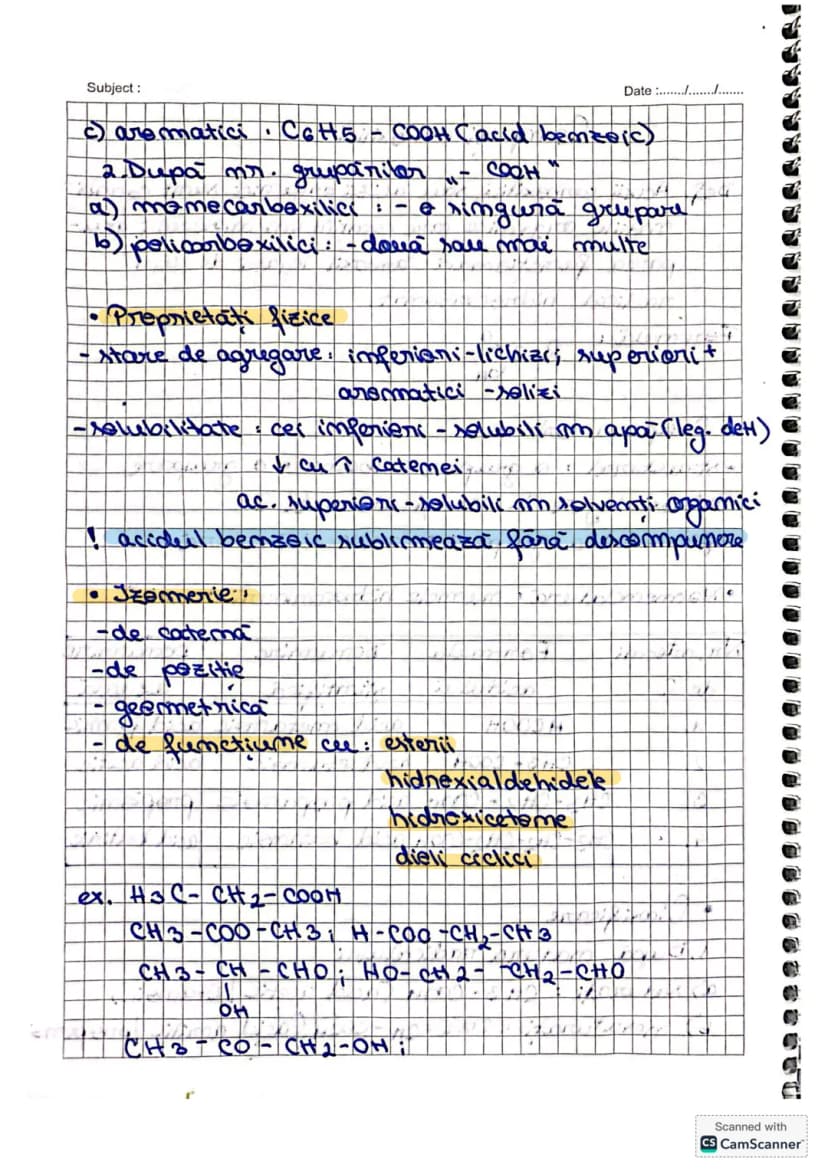 Subject :
Date :......./......./.......
c) aromatici : C6H5 - COOH (acid benzoic)
2. După nr. grupărilor „- COOH"
a) monocarboxilici : - o singură grupare
b) policarboxilici : - două sau mai multe
• Proprietăți fizice
- stare de agregare : inferiori-lichizi; superiori +
aromatici - solizi
- solubilitate : cei inferiori - solubili în apă (leg. de H)
↓ cu ↑ catenei
ac. superiori - solubili în solvenți organici
! acidul benzoic sublimează fără descompunere
• Izomerie :
- de catenă
- de poziție
- geometrică
- de funcțiune cu : esterii
hidroxialdehidele
hidroxicetone
dioli ciclici
ex. H3C - CH2 - COOH
CH3 - COO - CH3 ; H - COO - CH2 - CH3
CH3 - CH - CHO ; HO - CH2 - CH2 - CHO
|
OH
CH3 - CO - CH2 - OH ;
Scanned with
CS CamScanner